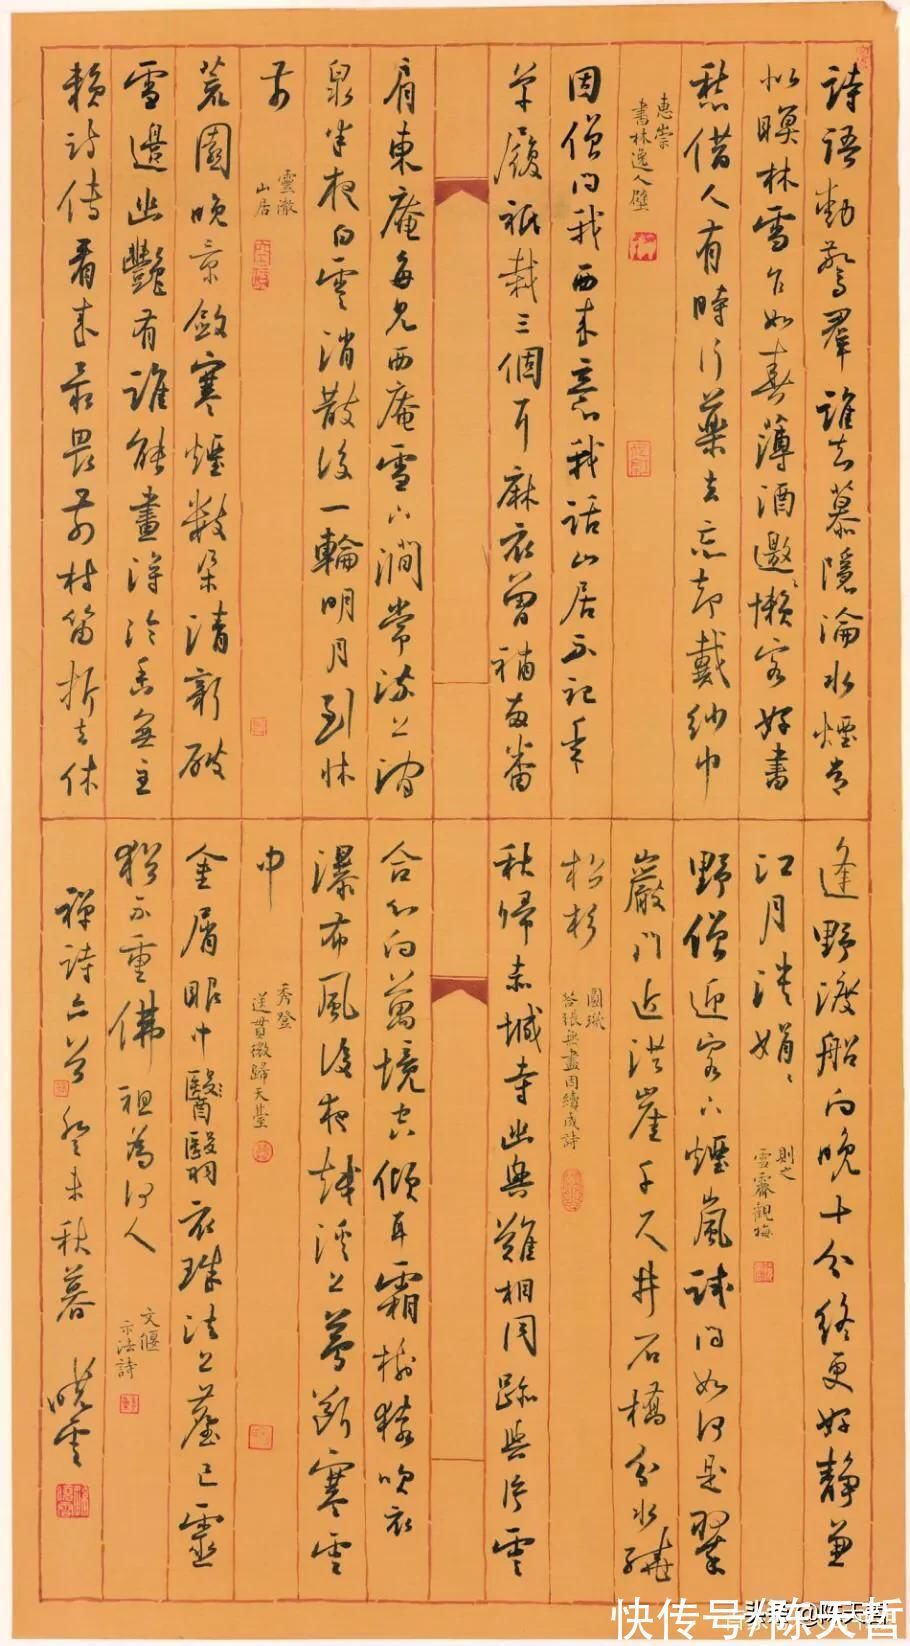 詩語動驚羣誰去慕隱淪水煙常
似暝林雪乍如春薄酒邀懶客好書
愁借人有時行藥去忘卻戴紗巾
惠崇
書林逸人壁
因僧問我西來意我話山居不記年
草履祇栽三個耳麻衣曾補兩番
肩東庵每見西庵雪下澗常流上澗
泉半夜白雲消散後一輪明月到牀
前
雲澈
山居
荒園晚景斂寒煙數朵清新破
雪邊幽艷有誰能畫得冷香無主
賴詩傳看來最畏前村笛折去休
逢野渡船向晚十分終更好靜兼
江月淡娟〻
則之
雪霽觀梅
野僧迎客下煙嵐試問如何是翠
巖門近洪崖千尺井石橋分水繞
松杉
圓璣
答張無盡因續成詩
秋歸赤城寺幽興難相同跡與片雲
合心向萬境空傾耳霜樹猿吹衣
瀑布風後夜越溪上夢斷寒雲
中
秀登
送貫微歸天臺
金屑眼中翳衣珠法上塵己靈
猶不重佛祖為何人
文偃
示法詩
禪詩六首癸未秋暮曉雲
快传号/陈天哲